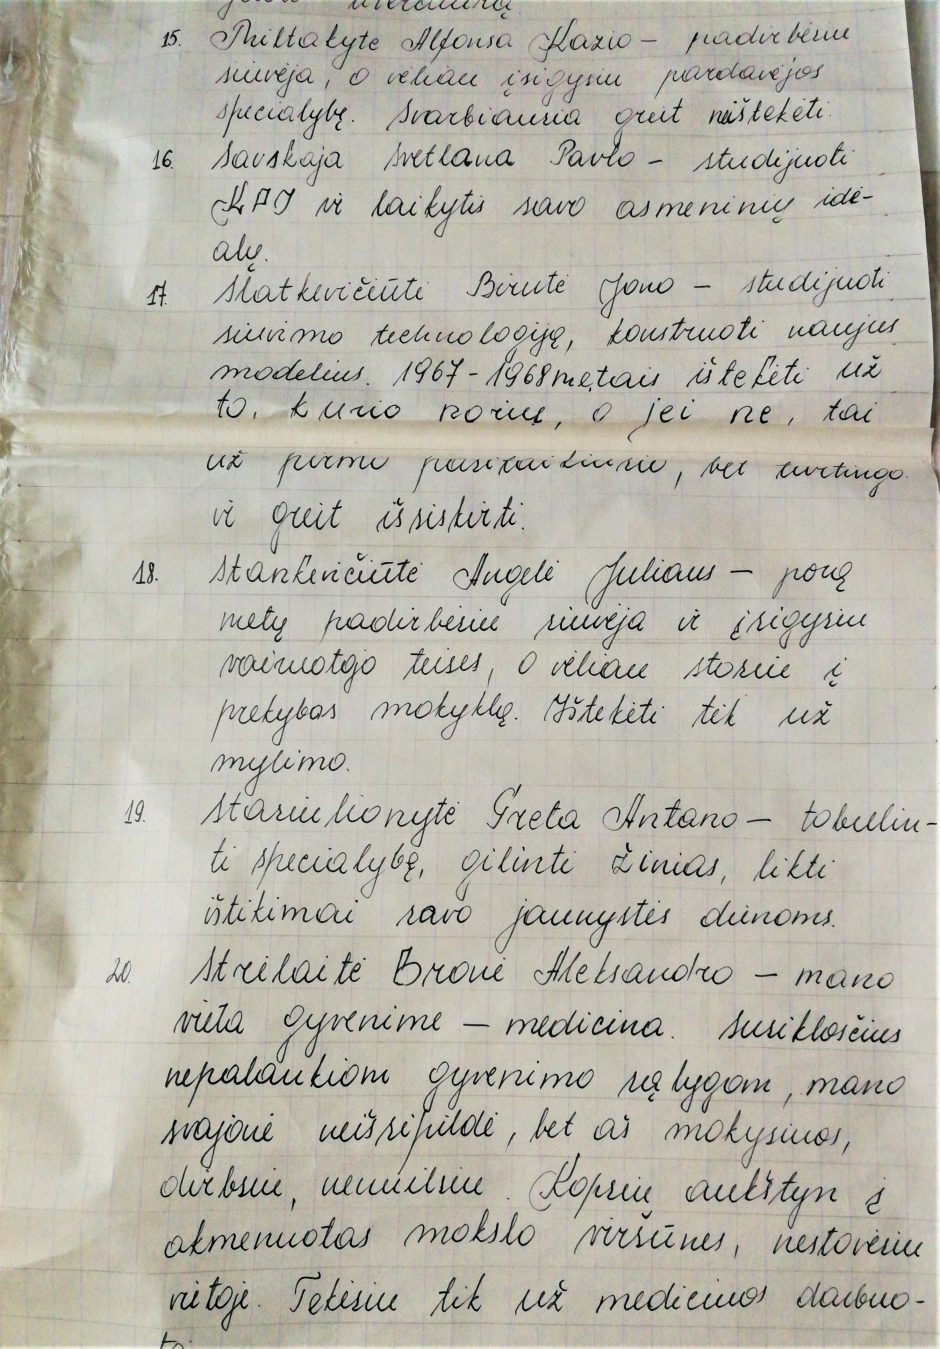 literatūrą
15. Miltakytė Alfonsa Kazio – padirbėsiu
siuvėja, o vėliau įsigysiu pardavėjos
specialybę. Svarbiausia greit neištekėti.
16. Savskaja Svetlana Pavlo – studijuoti
KPI ir laikytis savo asmeninių ide-
alų.
17. Slatkevičiūtė Birutė Jono – studijuoti
siuvimo technologiją, konstruoti naujus
modelius. 1967-1968 metais ištekėti už
to, kurio noriu, o jei ne, tai
už pirmo pasitaikiusio, bet turtingo
ir greit išsiskirti.
18. Stankevičiūtė Angelė Juliaus – porą
metų padirbėsiu siuvėja ir įsigysiu
vairuotojo teises, o vėliau stosiu į
prekybos mokyklą. Ištekėti tik už
mylimo.
19. Stasiulionytė Greta Antano – tobulin-
ti specialybę, gilinti žinias, likti
ištikimai savo jaunystės dienoms.
20. Strėlaitė Bronė Aleksandro – mano
vieta gyvenime – medicina. Susiklosčius
nepalankiom gyvenimo sąlygom, mano
svajonė neišsipildė, bet aš mokysiuos,
dirbsiu, nenuilsiu. Kopsiu aukštyn į
akmenuotas mokslo viršūnes, nestovėsiu
vietoje. Tekėsiu tik už medicinos darbuo-